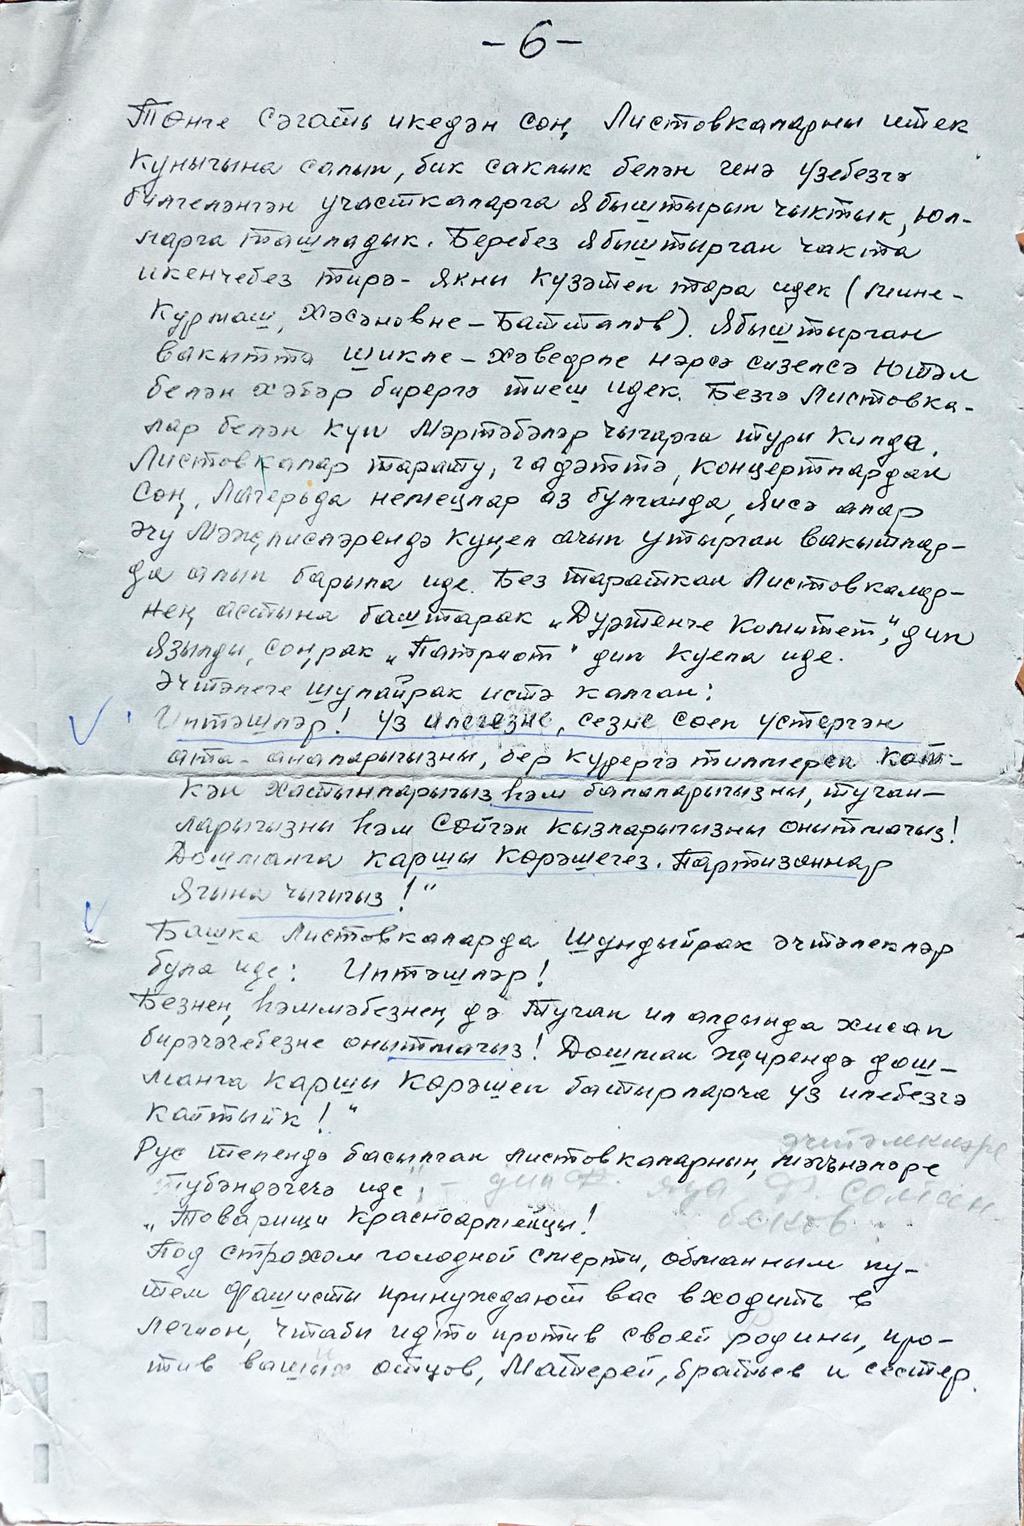 -6-
Төнге сәгать икедән соң, Листовкаларны итек
кунычына салып, бик саклык белән генә үзебезгә
билгеләнгән участкаларга ябыштырып чыктык, юл-
ларга ташладык. Беребез ябыштырган чакта
икенчебез тирә-якны күзәтеп тора идек (мине-
Курмаш, Хәсәновне-Батталов). Ябыштырган
вакытта шикле-хәвефле нәрсә сизелсә ютәл
белән хәбәр бирергә тиеш идек. Безгә Листовка-
лар белән күп мәртәбәләр чыгарга туры килде.
Листовкалар тарату, гадәттә, концертлардан
соң, Лагерьда немецлар аз булганда, яисә алар
эчү мәҗлисләрендә күңел ачып утырган вакытлар-
да алып барыла иде. Без тараткан Листовкалар-
нең астына баштарак „Дүртенче Комитет," дип
язылды, соңрак „Патриот" дип куела иде.
Эчтәлеге шулайрак истә калган:
Иптәшләр! Үз илегезне, сезне сөеп үстергән
ата-аналарыгызны, бер күрергә тилмереп көт-
кән хатынларыгыз һәм балаларыгызны, туган-
ларыгызны һәм сөйгән кызларыгызны онытмагыз!
Дошманга каршы көрәшегез. Партизаннар
ягына чыгыгыз!"
Башка Листовкаларда шундыйрак эчтәлекләр
була иде: Иптәшләр!
Безнең, һәммәбезнең дә туган ил алдында хисап
бирәчәгебезне онытмагыз! Дошман җирендә дош-
манга каршы көрәшеп батырларча үз илебезгә
кайтыйк!"
эчтәлекләре
Рус телендә басылган листовкаларның мәгънәләре
түбәндәгечә иде; - дип яза Ф.
„Товарищи Красноармейцы!
Под страхом голодной смерти, обманным пу-
тем фашисты принуждают вас входить в
легион, чтобы идти против своей родины, про-
тив ваших отцов, матерей, братьев и сестер.